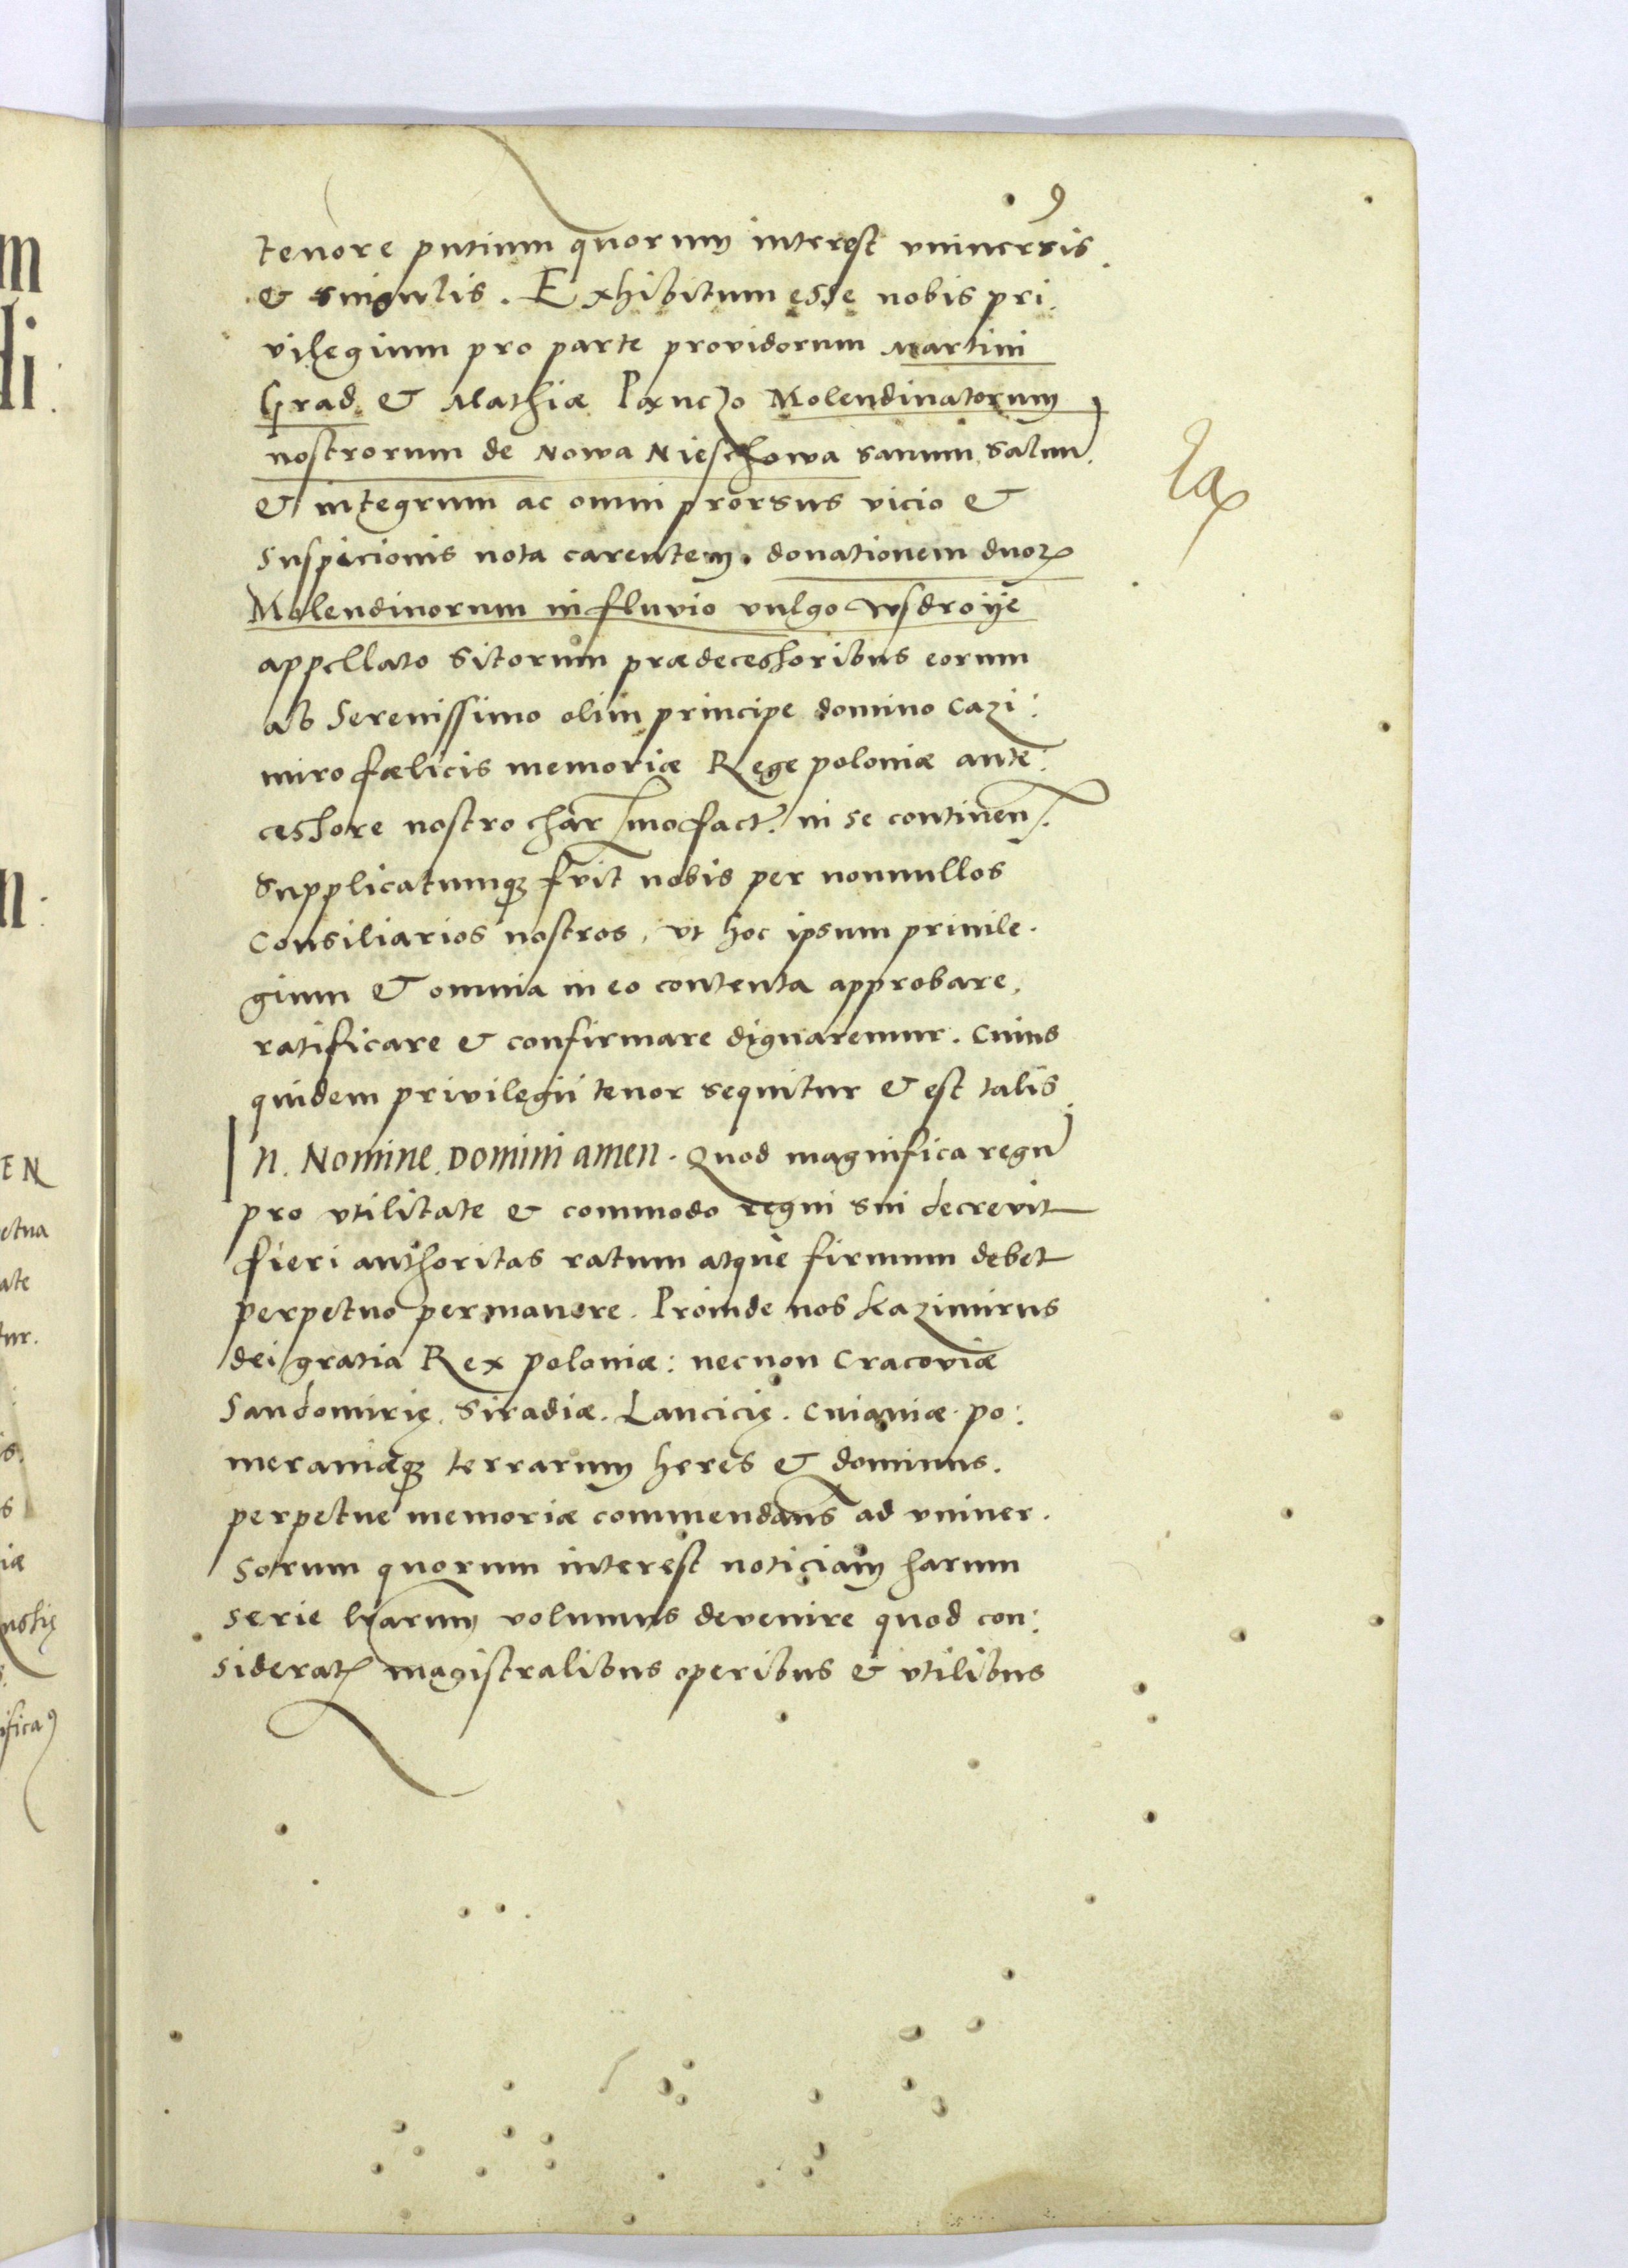 9
tenore pntium quorum interest vniuersis
& singulis. Exhibitum esse nobis pri.
vilegium pro parte providorum Martini
Grad & Mathiæ Panczo Molendinatorum
nostrorum de Nowa Nieschowa sanum, saluu
& integrum ac omni prorsus vicio &
suspicionis nota carentem. donationem duoꝝ
Molendinorum in fluvio vulgo wsdroije
appellato sitorum prædecessoribus eorum
ab Serenissimo olim principe domino Cazi:
miro fœlicis memoriæ Rege poloniæ ante:
cessore nostro charmo fact. in se continen.
Supplicatumqꝫ fuit nobis per nonnullos
Consiliarios nostros, vt hoc ipsum priuile.
gium & omnia in eo contenta approbare,
ratificare & confirmare dignaremur. Cuius
quidem privilegii tenor sequitur & est talis
In. Nomine. Domini amen. Quod magnifica regu
pro vtilitate & commodo regni sui decrevit
fieri authoritas ratum atque firmum debet
perpetuo permanere. Proinde nos Kazimirus
dei gratia Rex poloniæ: necnon Cracoviæ
Sandomirię. Siradiæ. Lancicię. Cuiauiæ. po:
meraniæqꝫ terrarum heres & dominus.
perpetue memoriæ commendans ad vniuer.
sorum quorum interest noticiam harum
serie lrarum volumus devenire quod con:
siderat magistralibus operibus & vtilibus